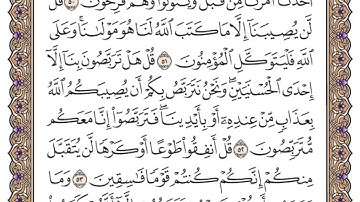 أَخَذْنَآ أَمْرَنَا مِن قَبْلُ وَيَتَوَلَّوا۟ وَّهُمْ فَرِحُونَ ٥٠ قُل
لَّن يُصِيبَنَآ إِلَّا مَا كَتَبَ ٱللَّهُ لَنَا هُوَ مَوْلَىٰنَا ۚ وَعَلَى
ٱللَّهِ فَلْيَتَوَكَّلِ ٱلْمُؤْمِنُونَ ٥١ قُلْ هَلْ تَرَبَّصُونَ بِنَآ إِلَّآ
إِحْدَى ٱلْحُسْنَيَيْنِ ۖ وَنَحْنُ نَتَرَبَّصُ بِكُمْ أَن يُصِيبَكُمُ ٱللَّهُ
بِعَذَابٍ مِّنْ عِندِهِۦٓ أَوْ بِأَيْدِينَا ۖ فَتَرَبَّصُوٓا۟ إِنَّا مَعَكُم
مُّتَرَبِّصُونَ ٥٢ قُلْ أَنفِقُوا۟ طَوْعًا أَوْ كَرْهًا لَّن يُتَقَبَّلَ
مِنكُمْ ۖ إِنَّكُمْ كُنتُمْ قَوْمًا فَـٰسِقِينَ ٥٣ وَمَا